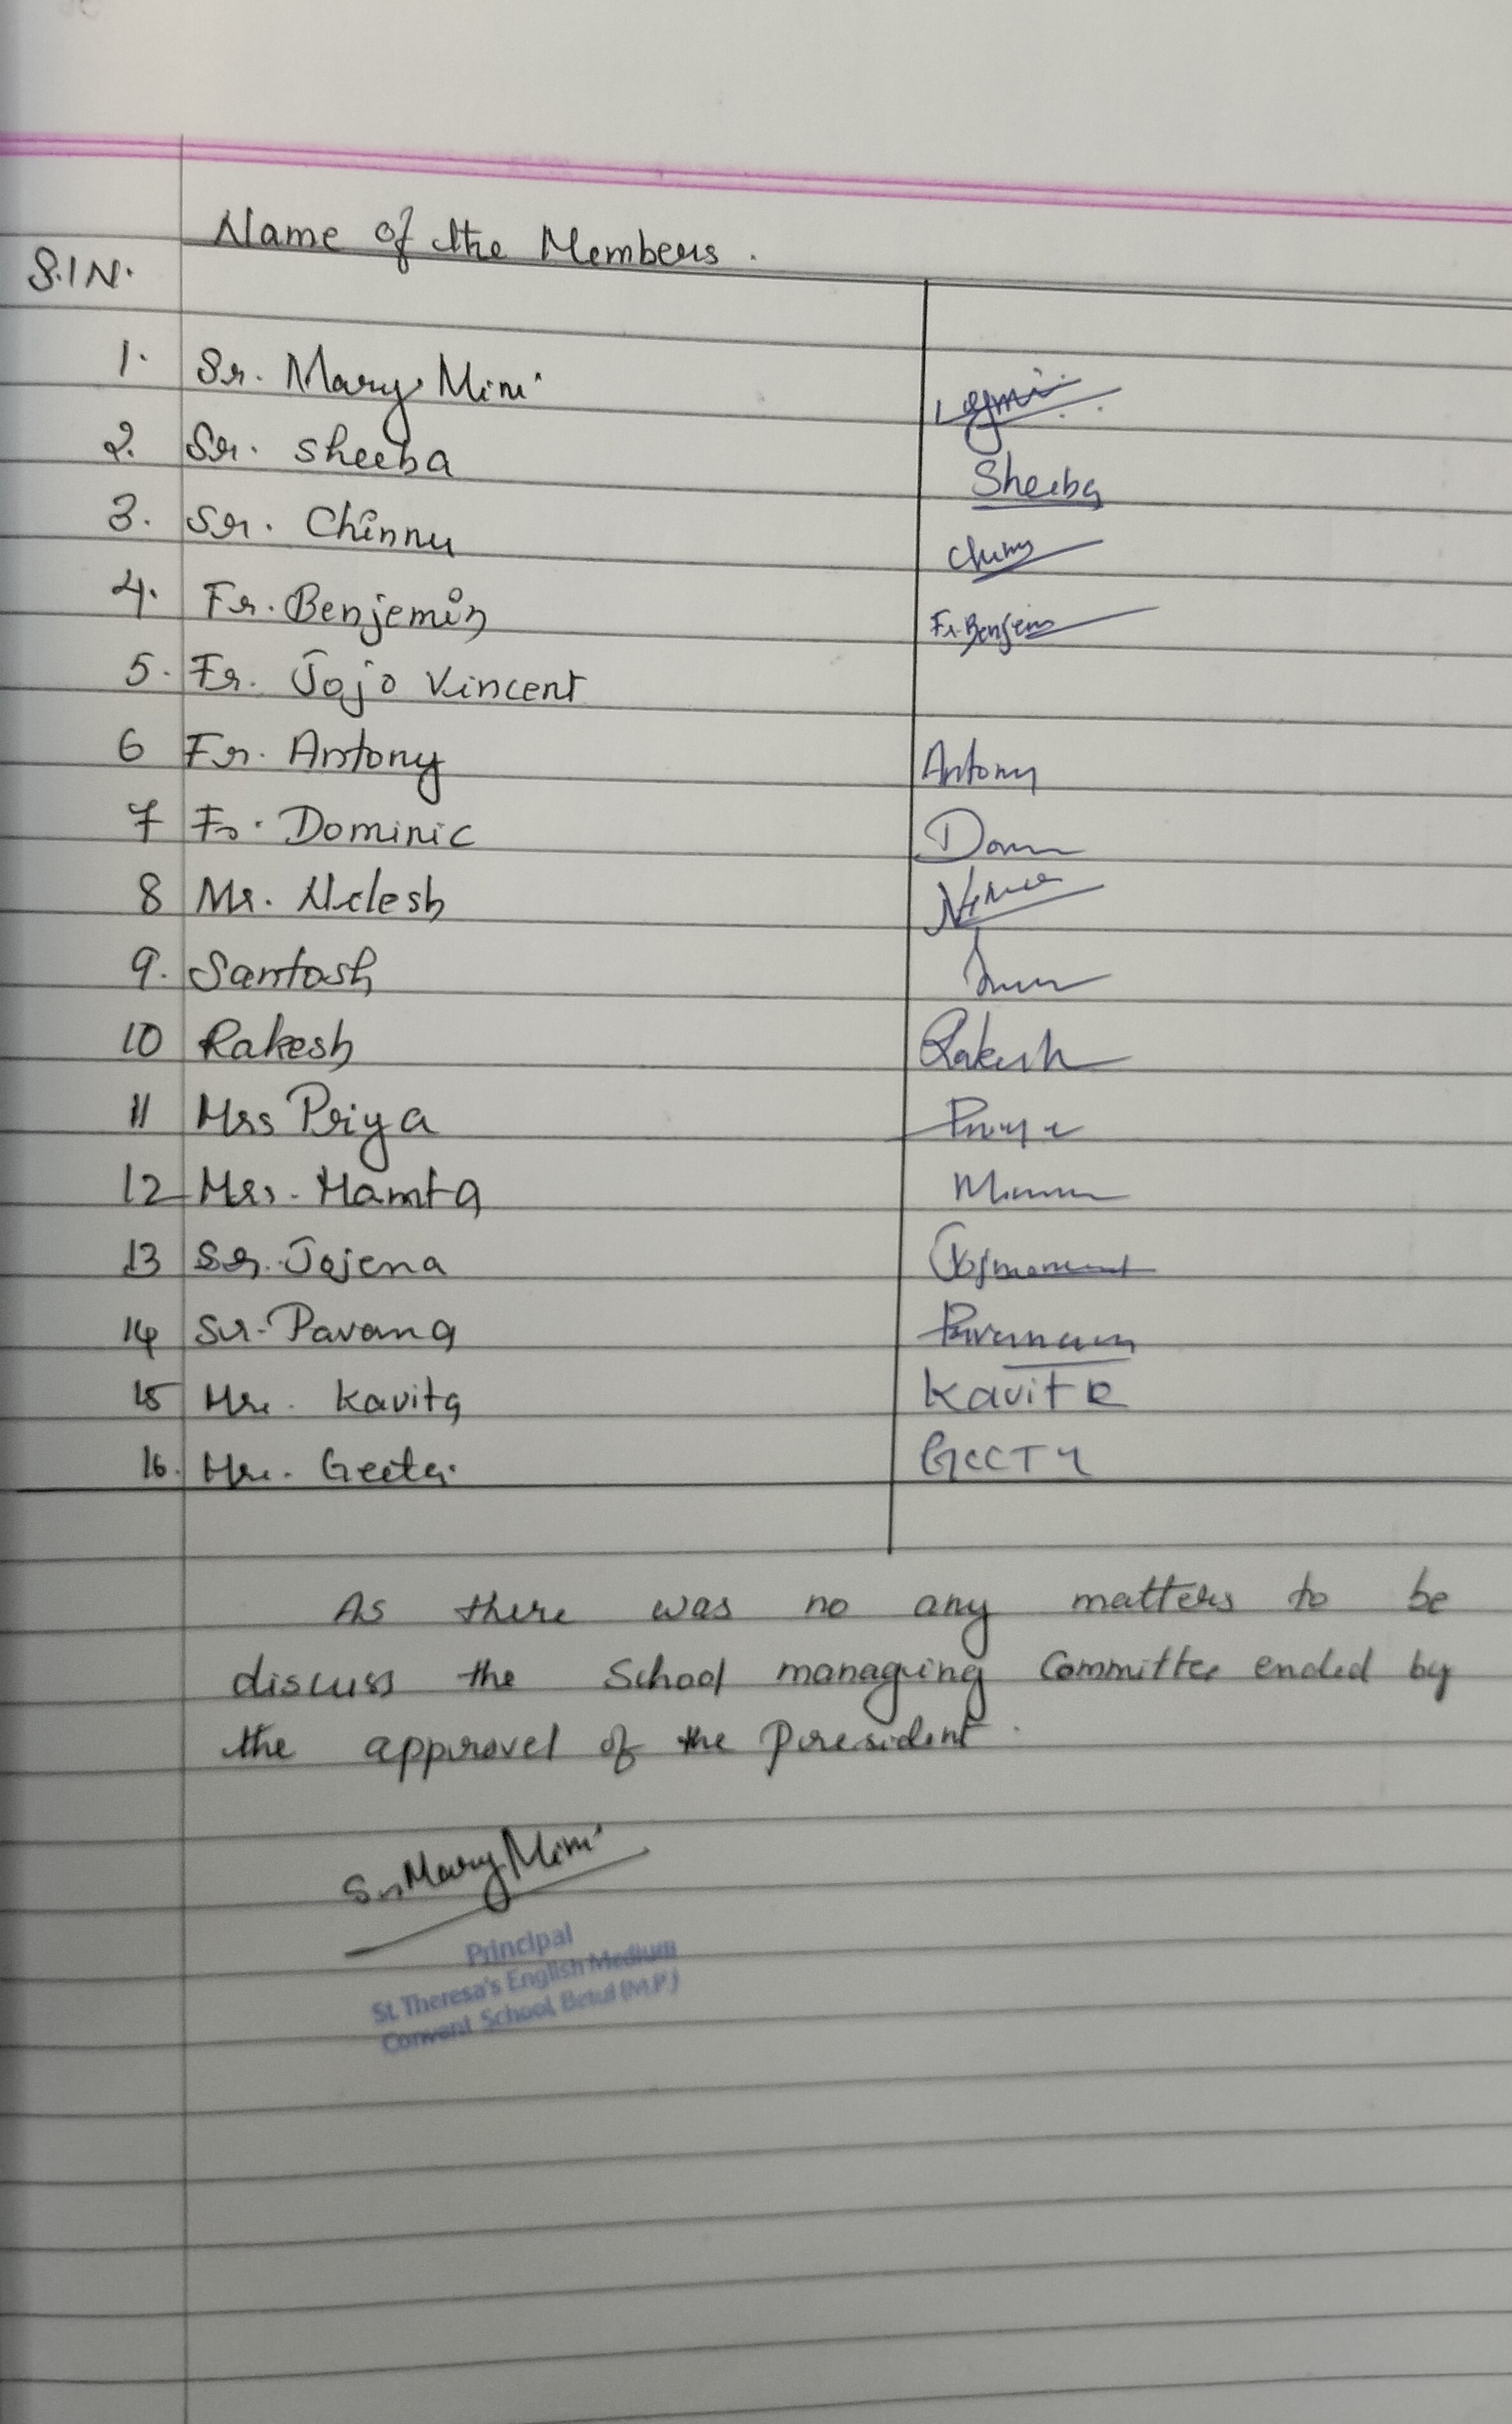 Name of the Members.
S.lN.
1. Sr. Mary Mini
2. Sr. Sheeba Sheeba
3. Sr. Chinnu
4. Fr. Benjemin Fr. Benjemin
5. Fr. Jojo Vincent
6 Fr. Antony Antony
7 Fr. Dominic
8 Mr. Nilesh
9. Santosh
10 Rakesh Rakesh
11 Mrs Priya Priya
12 Mrs. Mamta
13 Sr. Jojena
14 Sr. Pavana
15 Mrs. Kavita Kavita
16. Mrs. Geeta
As there was no any matters to be
discuss the School managing Committee ended by
the approvel of the President.
Sr Mary Mini
Principal
St. Theresa's English Medium
Convent School, Betul (M.P.)